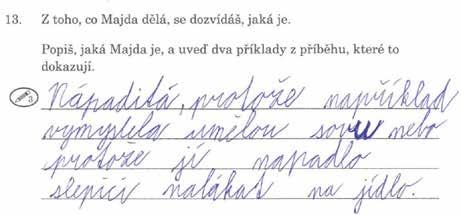 13. Z toho, co Majda dělá, se dozvídáš, jaká je.
Popiš, jaká Majda je, a uveď dva příklady z příběhu, které to
dokazují.
3 Nápaditá, protože například
vymyslela umělou sovu nebo
protože jí napadlo
slepici nalákat na jídlo.